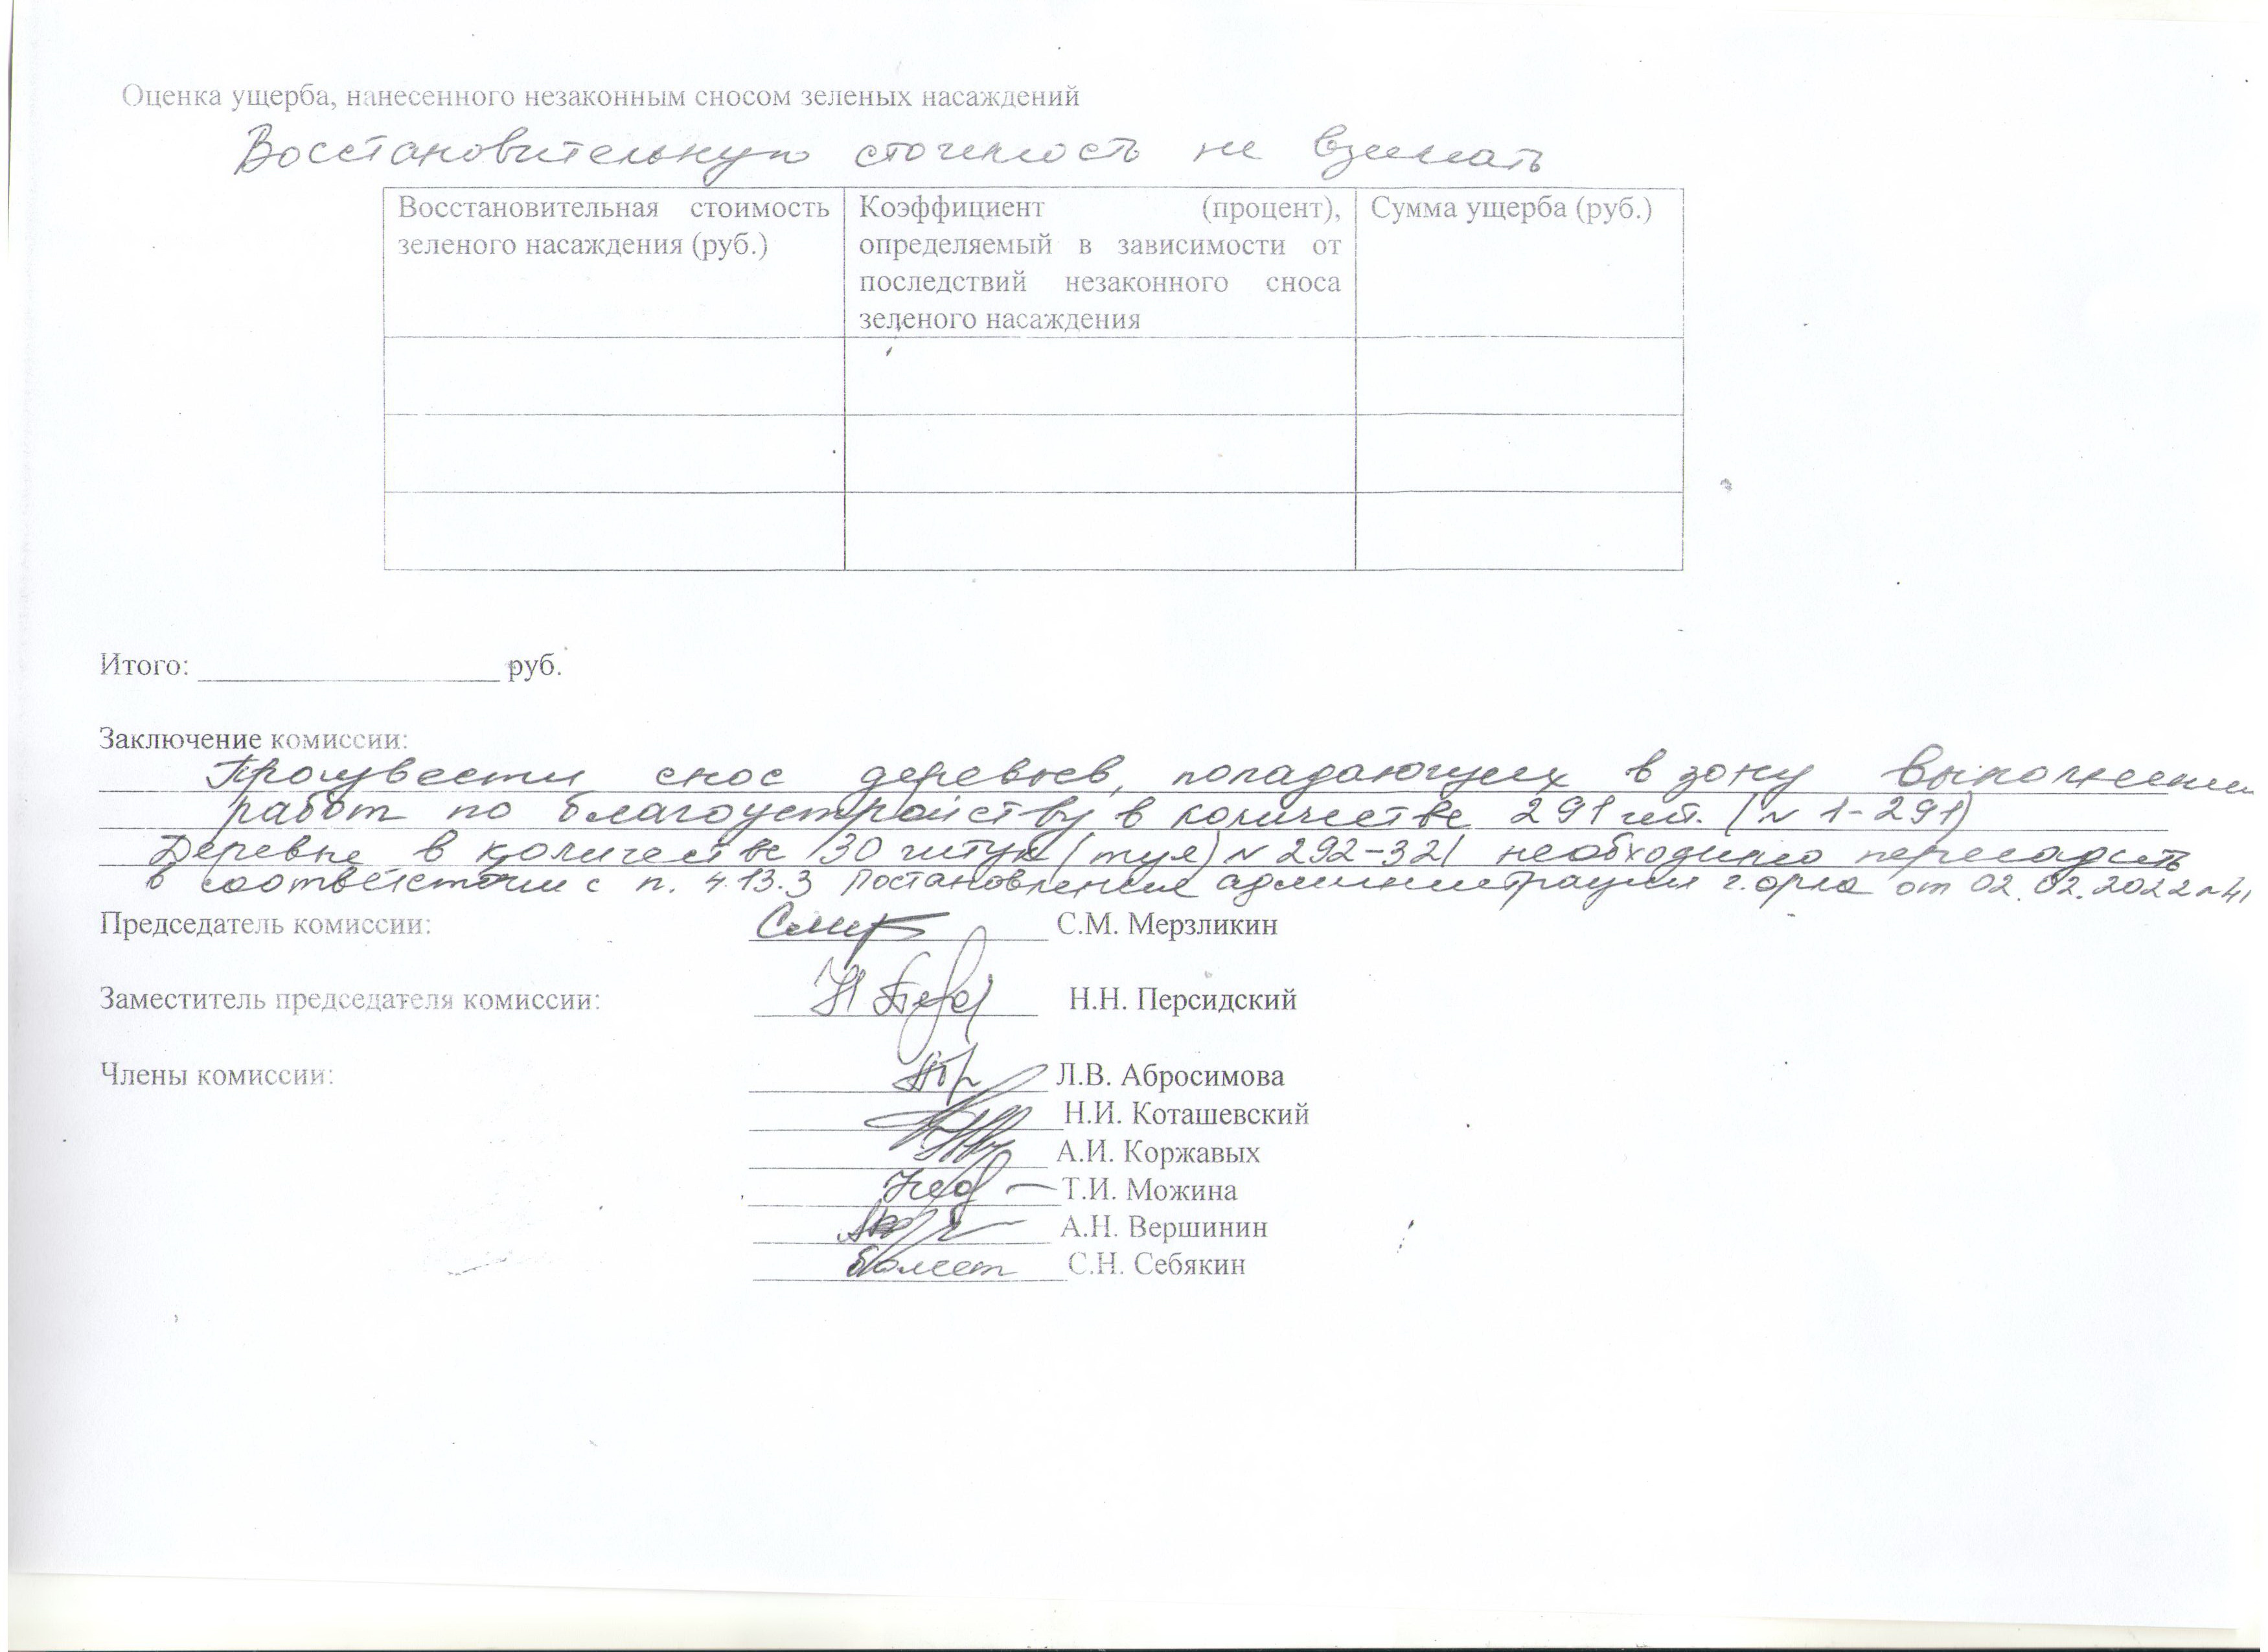 Оценка ущерба, нанесенного незаконным сносом зеленых насаждений
Восстановительную стоимость не взимать
Восстановительная стоимость
зеленого насаждения (руб.)
Коэффициент (процент),
определяемый в зависимости от
последствий незаконного сноса
зеленого насаждения
Сумма ущерба (руб.)
Итого: ____________________ руб.
Заключение комиссии:
Произвести снос деревьев, попадающих в зону выполнения
работ по благоустройству в количестве 291 шт. (№ 1-291)
Деревья в количестве 30 штук (туя) № 292-321 необходимо пересадить
в соответствии с п. 4.13.3 Постановления администрации г. Орла от 02.02.2022 №
Председатель комиссии: С.М. Мерзликин
Заместитель председателя комиссии: Н.Н. Персидский
Члены комиссии: Л.В. Абросимова
Н.И. Коташевский
А.И. Коржавых
Т.И. Можина
А.Н. Вершинин
С.Н. Себякин